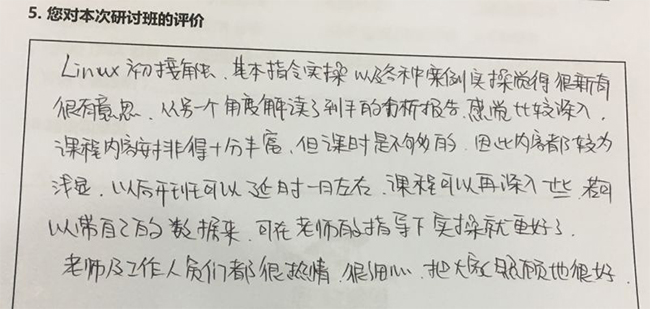 5. 您对本次研讨班的评价
Linux 初接触、基本指令实操以及各种案例实操觉得很新奇
很有意思、从另一个角度解读了到手的分析报告、感觉比较深入，
课程内容安排得十分丰富、但课时是不够的、因此内容都较为
浅显、以后开班可以延时一月左右、课程可以再深入些、若可
以带自己的数据来、可在老师的指导下实操就更好了、
老师及工作人员们都很热情、很细心、把大家照顾地很好、